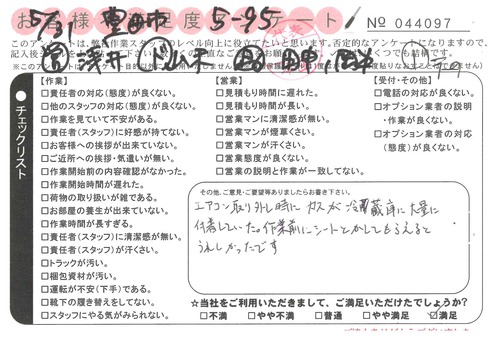 お客様満足度アンケート
5/31 豊田市 5-95
No 044097
このアンケートは、弊社作業スタッフのレベル向上に役立てたいと思います。否定的なアンケートになりますので、
浅井
【作業】
□責任者の対応(態度)が良くない。
□他のスタッフの対応(態度)が良くない。
□作業を見ていて不安がある。
□責任者(スタッフ)に好感が持てない。
□お客様への挨拶が出来ていない。
□ご近所への挨拶・気遣いが無い。
□作業開始前の内容確認がなかった。
□作業開始時間が遅れた。
□荷物の取り扱いが雑である。
□お部屋の養生が出来ていない。
□作業時間が長すぎる。
□責任者(スタッフ)に清潔感が無い。
□責任者(スタッフ)が汗くさい。
□トラックが汚い。
□梱包資材が汚い。
□運転が不安(下手)である。
□靴下の履き替えをしてない。
□スタッフにやる気がみられない。
【営業】
□見積もり時間に遅れた。
□見積もり時間が長い。
□営業マンに清潔感が無い。
□営業マンが煙草くさい。
□営業マンが汗くさい。
□営業態度が良くない。
□営業の説明と作業が一致してない。
【受付・その他】
□電話の対応が良くない。
□オプション業者の説明
・作業が良くない。
□オプション業者の対応
(態度)が良くない。
チェックリスト
その他、ご意見・ご要望等ありましたらお書き下さい。
エアコン取り外し時に ガスが 冷蔵庫に大量に
付着していた。作業前にシートとかしてもらえると
うれしかったです
☆当社をご利用いただきまして、ご満足いただけたでしょうか?
□不満 □やや不満 □普通 □やや満足 ☑満足